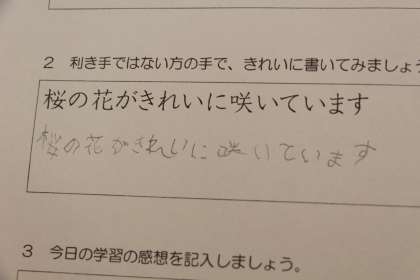 2 利き手ではない方の手で、きれいに書いてみましょう
桜の花がきれいに咲いています
桜の花がきれいに咲いています
3 今日の学習の感想を記入しましょう。